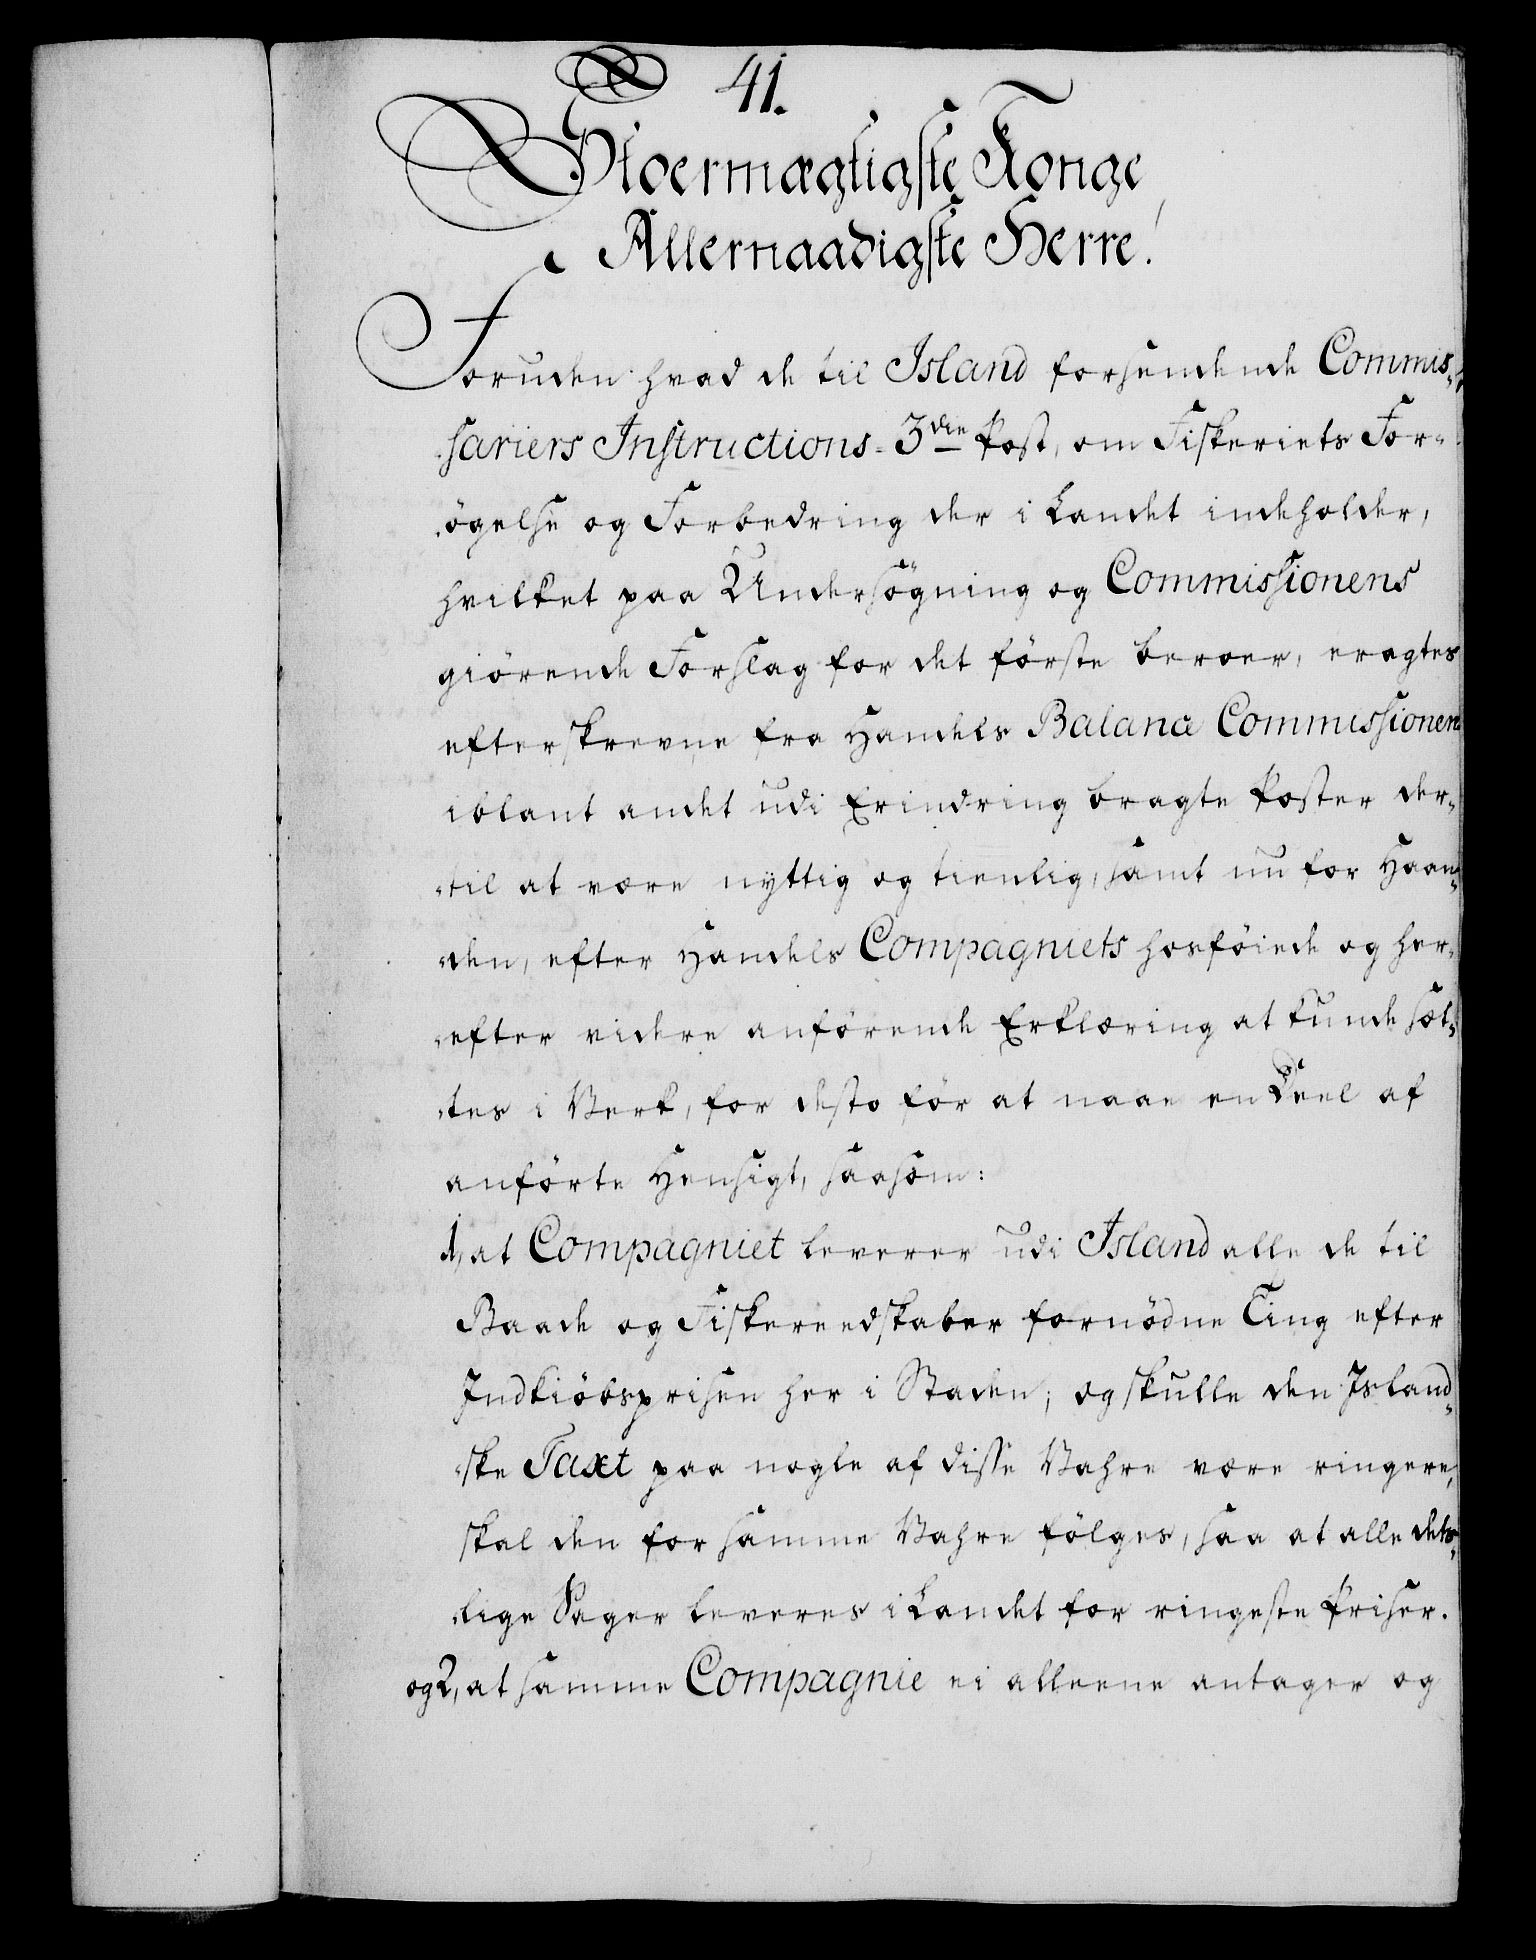 41.
Stoermægtigste Konge,
Allernaadigste Herre!
Foruden hvad de til Island forsendende Commis-
sariers Instructions-3die Post, om Fiskeriets For-
øgelse og Forbedring der i Landet indeholder,
hvilket paa Undersøgning og Commissionens
giörende Forslag for det förste beroer, eragtes
efterskrevne fra Handels Balance Commissionen
iblant andet udi Erindring bragte Poster der-
til at være nyttig og tienlig, samt nu for Haan-
den, efter Handels Compagniets hosföiede og her-
efter videre anförende Erklæring at kunde sæt-
tes i Verk, for desto för at naae en Deel af
anförte Hensigt, saasom:
1, at Compagniet leverer udi Island alle de til
Baade og Fiskereedskaber fornödne Ting efter
Indkiöbsprisen her i Staden; og skulle den Island-
ske Taxt paa nogle af disse Vahre være ringere,
skal den for samme Vahre fölges, saa at alle des-
lige Sager leveres i Landet for ringeste Priser.
og 2, at samme Compagnie ei alleene antager og